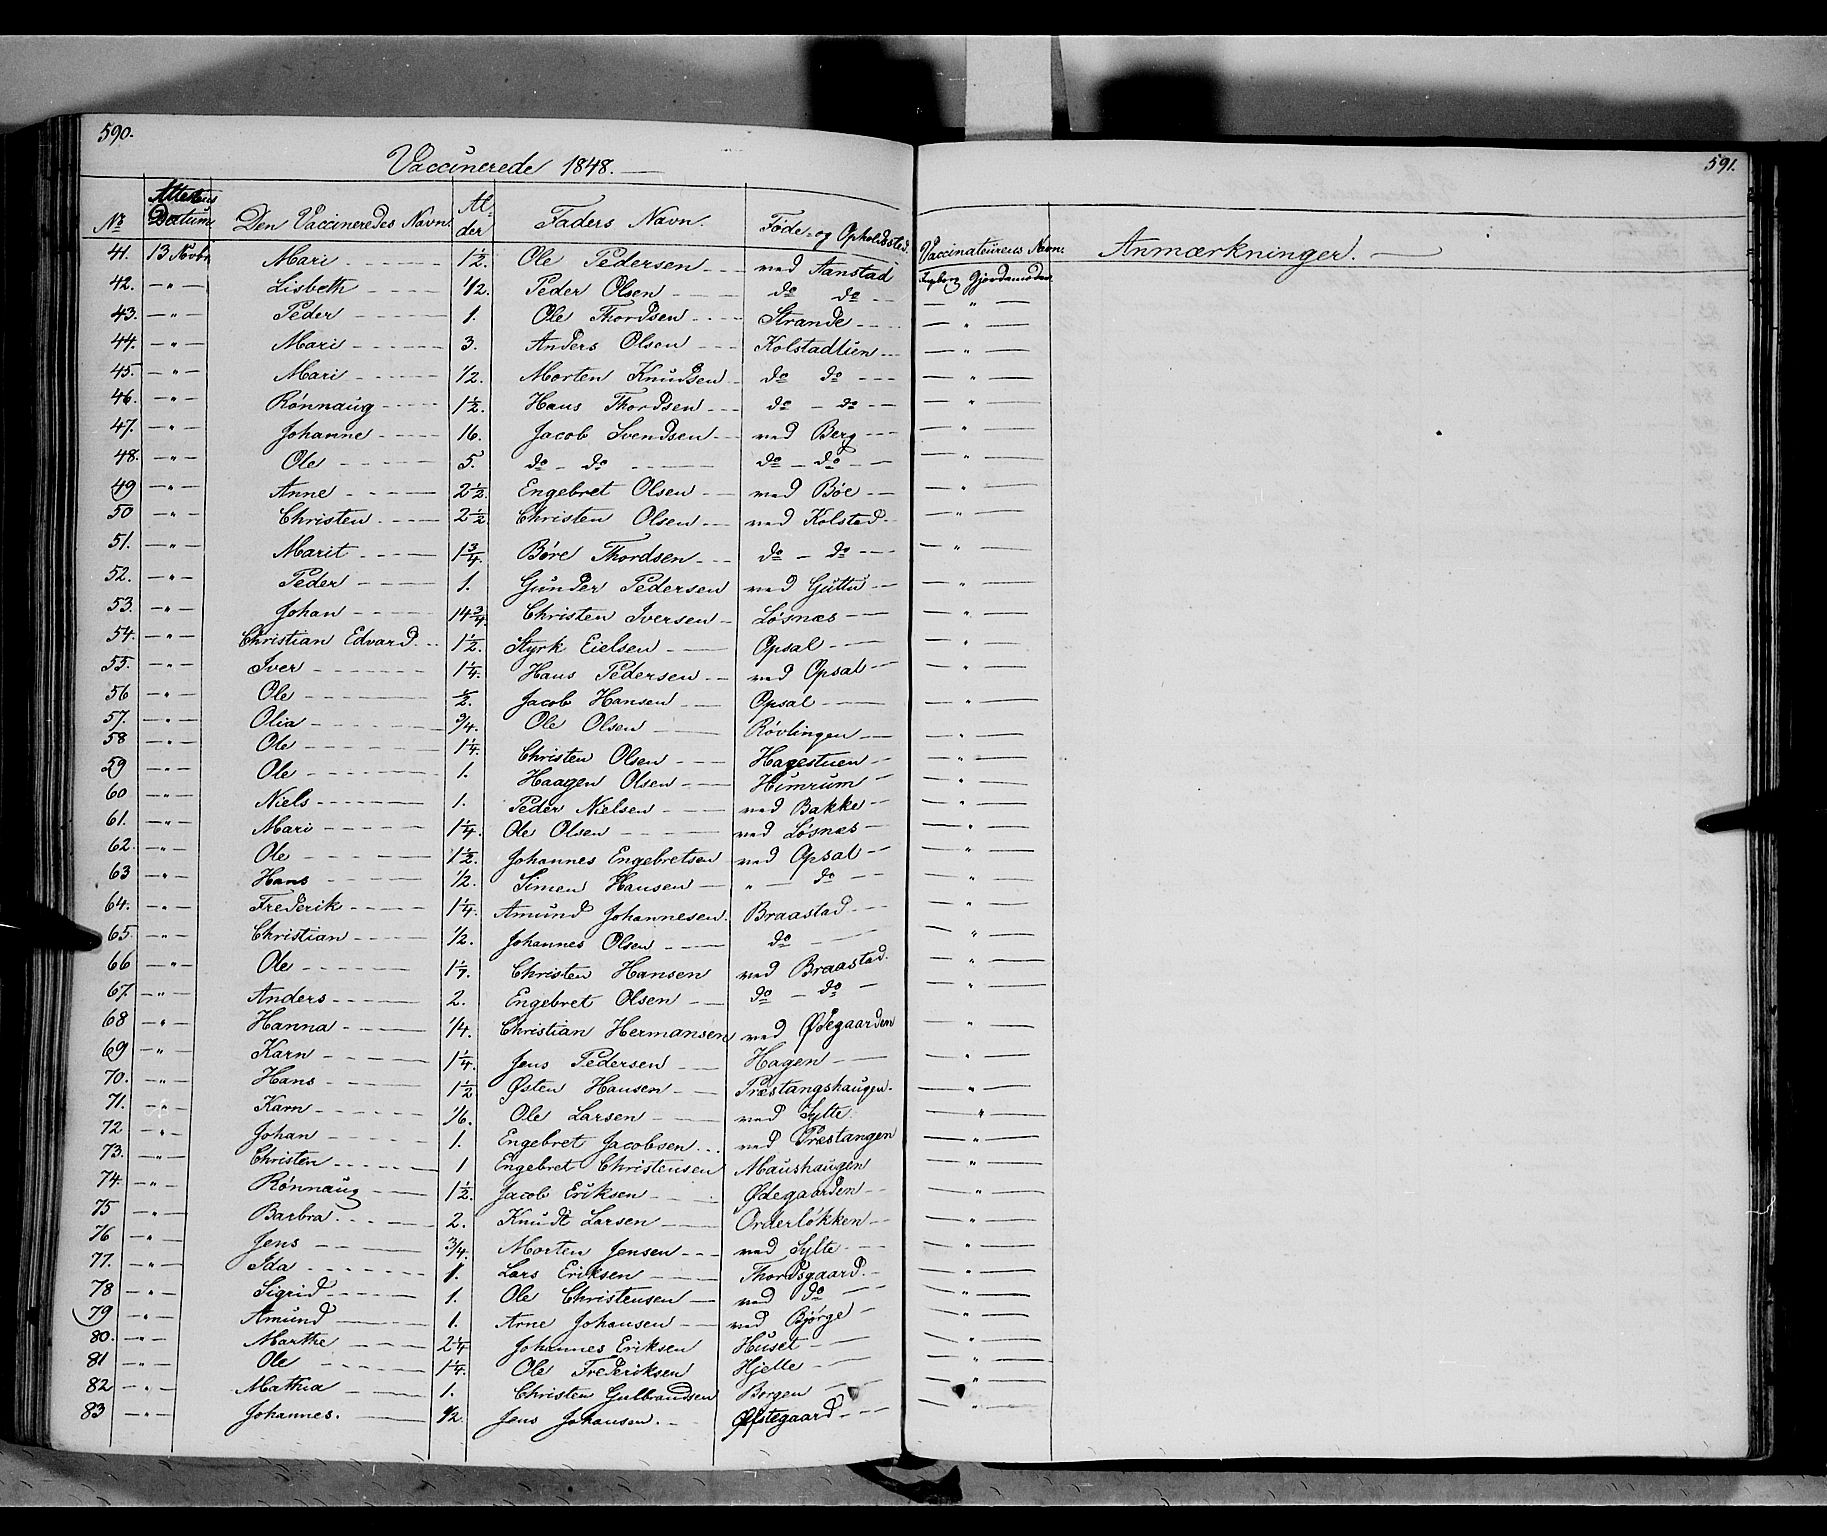 590.
Vaccinerede 1848.
No Attestens Datum Den Vaccineredes Navn. Alder Faders Navn. Føde- og Opholdssted.
41. 13 Novbr Mari 1½. Ole Pedersen ved Aanstad
42. — " — Lisbeth ½. Peder Olsen do do
43. — " — Peder 1. Ole Thordsen Strande
44. — " — Mari 3. Anders Olsen Kolstadlien
45. — " — Mari ½. Morten Knudsen do do
46. — " — Rönnaug 1½. Hans Thordsen do — do
47. — " — Johanne 16. Jacob Svendsen ved Berg
48. — " — Ole 5. do — do do — do
49 — " — Anne 2½. Engebret Olsen ved Böe
50 — " — Christen 2½. Christen Olsen ved Kolstad
51. — " — Marit 1¾. Böre Thordsen do — do
52. — " — Peder 1. Gunder Pedersen ved Guttu
53. — " — Johan 14¾. Christen Iversen Lösnæs
54. — " — Christian Edvard 1½. Styrk Eielsen Opsal
55. — " — Iver 1¼. Hans Pedersen ved Opsal
56 — " — Ole ½. Jacob Hansen Opsal
57. — " — Olia ¾. Ole Olsen Rövlingen
58 — " — Ole 1¼. Christen Olsen Hagestuen
59 — " — Ole 1. Haagen Olsen Himrum
60 — " — Niels 1. Peder Nielsen ved Bakke
61. — " — Mari 1¼. Ole Olsen ved Lösnæs
62. — " — Ole 1½. Johannes Engebretsen ved Opsal
63 — " — Hans ½. Simen Hansen " — do
64. — " — Frederik 1¼. Amund Johannesen. Braastad
65. — " — Christian ½. Johannes Olsen do
66 — " — Ole 1½. Christen Hansen ved Braastad.
67. — " — Anders 2. Engebret Olsen do — do
68 — " — Hanna ¼. Christian Hermansen ved Ødegaarden
69 — " — Karn 1¼. Jens Pedersen Hagen
70. — " — Hans 1½ Østen Hansen Præstangshaugen.
71. — " — Karn 1/6. Ole Larsen ved Sylte.
72 — " — Johan 1. Engebret Jacobsen ved Præstangen
73. — " — Christen 1 Engebret Christensen Maushaugen
74 — " — Rönnaug 1½. Jacob Eriksen Ødegaarden
75 — " — Barbra. 2. Knudt Larsen Orderlökken
76 — " — Jens ¾. Morten Jensen ved Sylte
77. — " — Ida 1. Lars Eriksen Thordsgaard.
78 — " — Sigrid 1. Ole Christensen ved do
79 — " — Amund 1. Arne Johansen ved Bjørge
80. — " — Marthe 2¼ Johannes Eriksen Huset
81 — " — Ole 1¼. Ole Frederiksen Hjelle
82 — " — Mathia 1. Christen Gulbrandsen Borgen
83 — " — Johannes. ½. Jens Johansen. Østegaard
591.
Vaccinateurens Navn. Anmærkninger.
Ingborg Gjordemoder